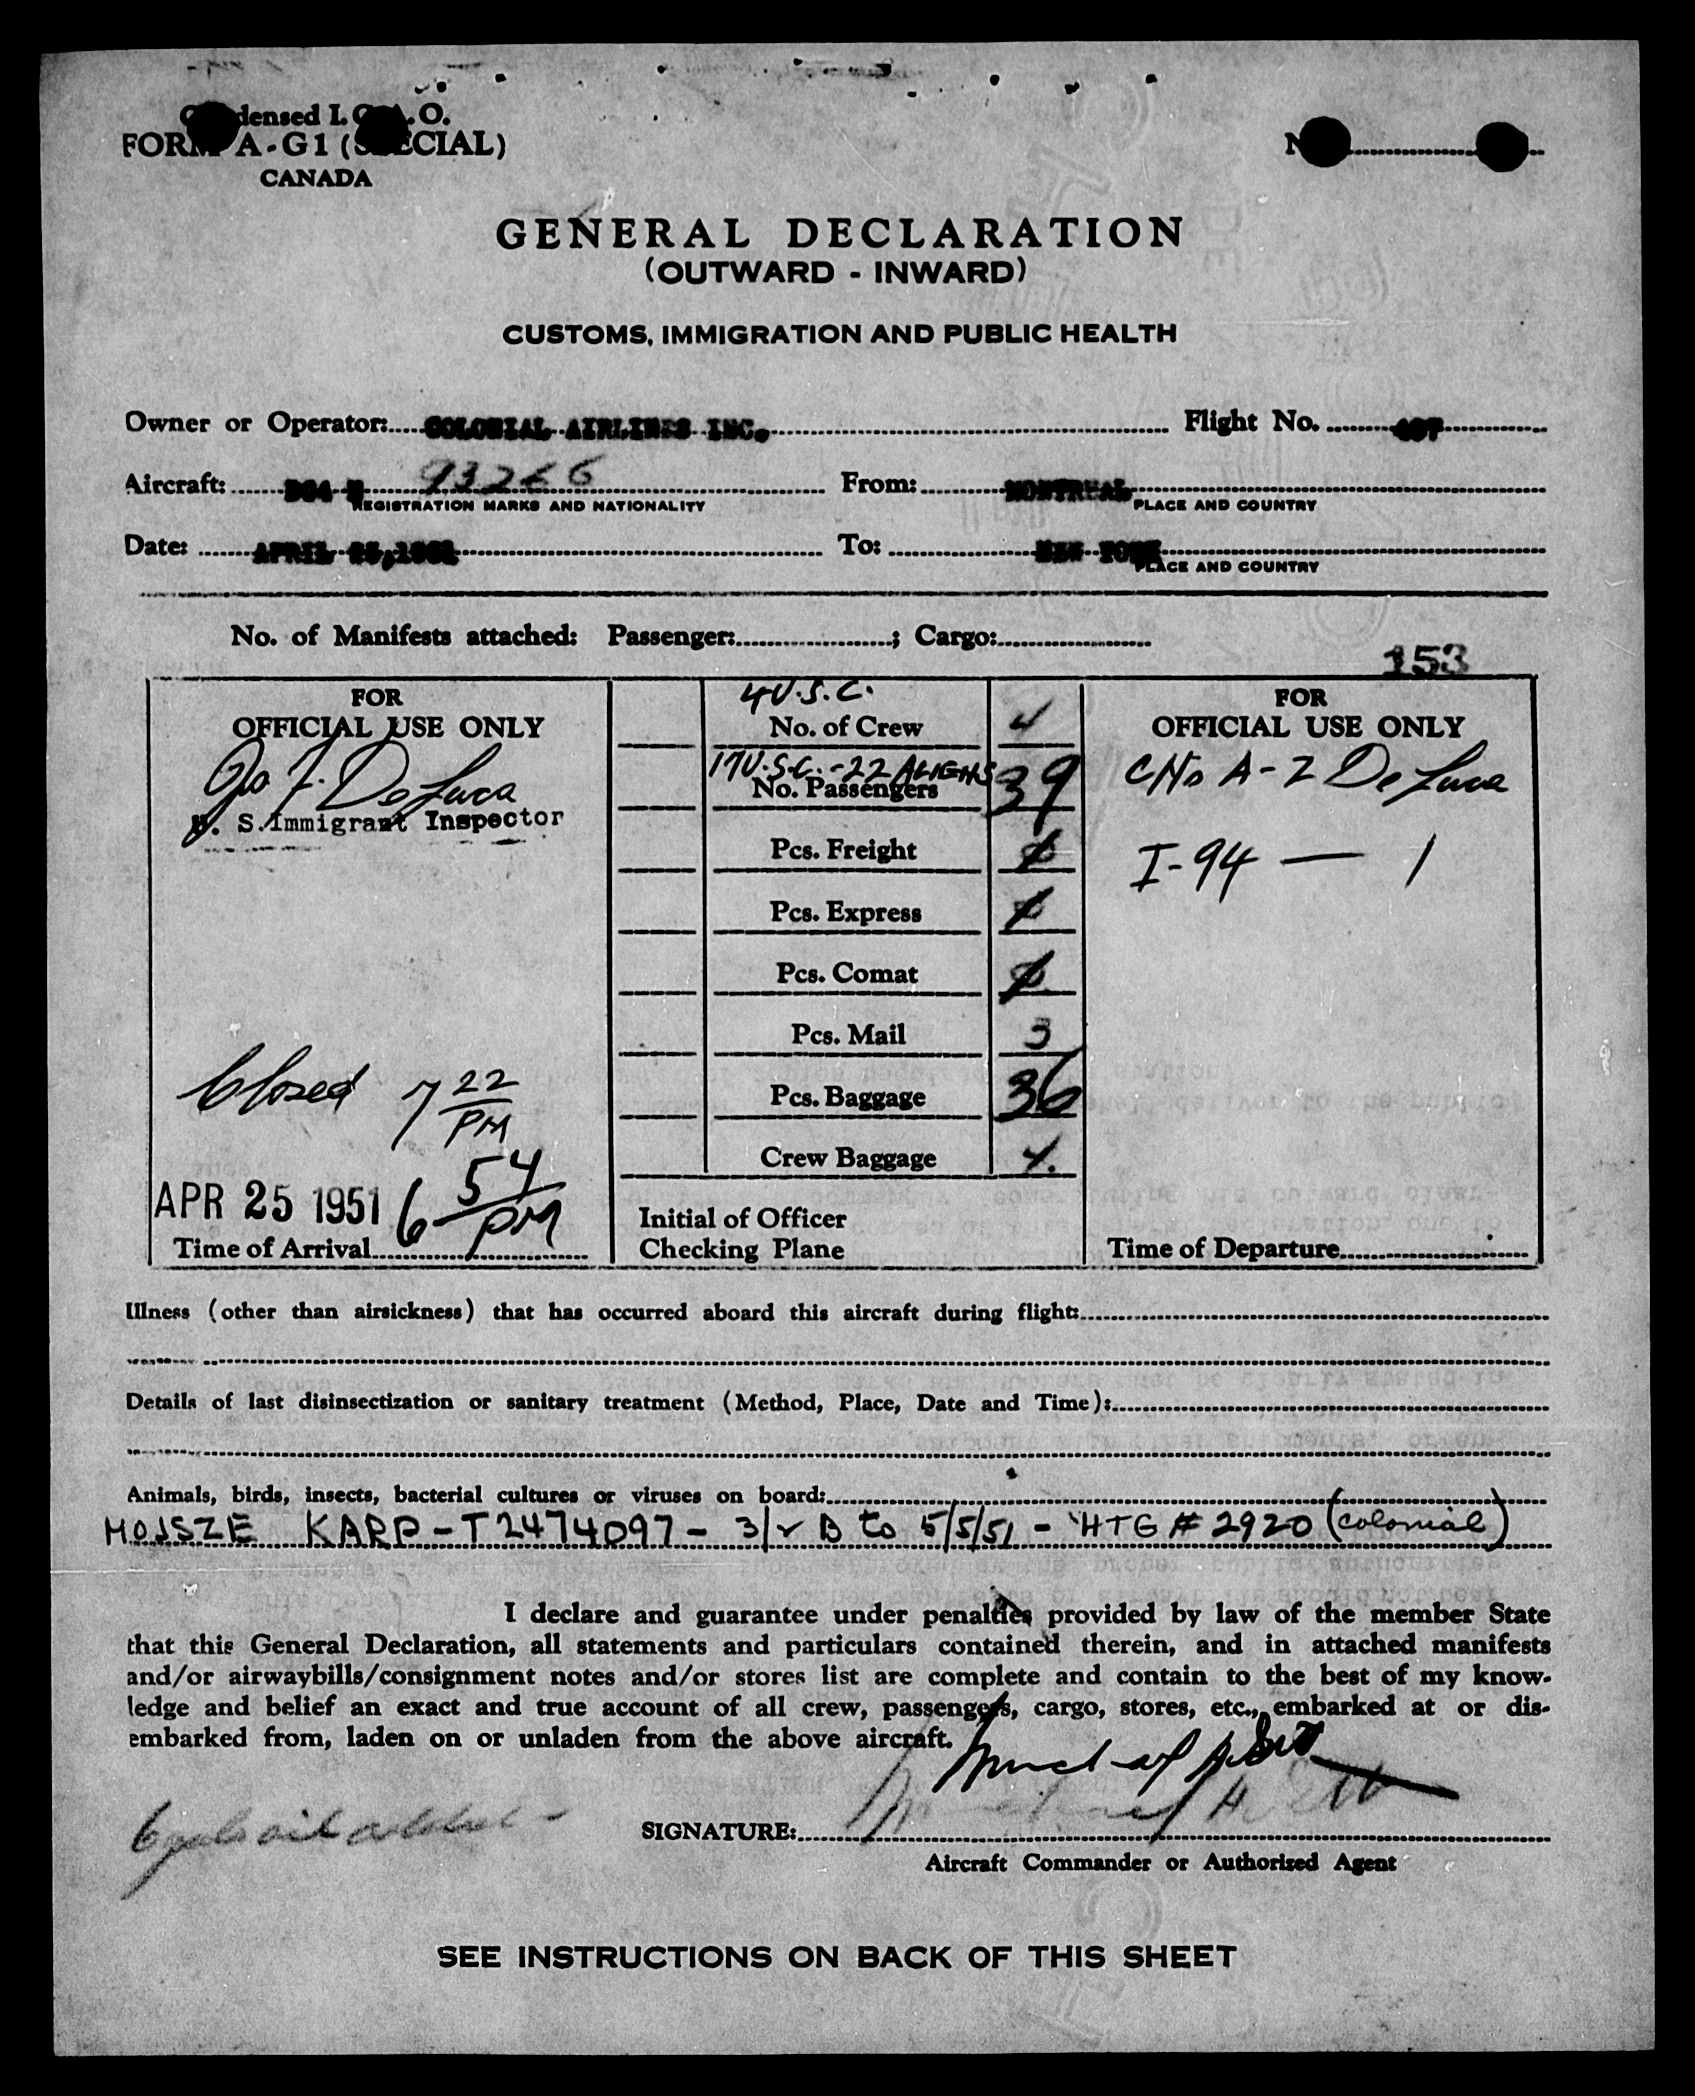 Condensed I.C.A.O.
FORM A-G1 (SPECIAL)
CANADA
GENERAL DECLARATION
(OUTWARD - INWARD)
CUSTOMS, IMMIGRATION AND PUBLIC HEALTH
Owner or Operator: COLONIAL AIRLINES INC. Flight No.
Aircraft: DC4 N 93266 From: MONTREAL
REGISTRATION MARKS AND NATIONALITY PLACE AND COUNTRY
Date: APRIL 25,1951 To: NEW YORK
PLACE AND COUNTRY
No. of Manifests attached: Passenger: ; Cargo:
153
FOR
OFFICIAL USE ONLY
Jo F. DeLuca
U. S. Immigrant Inspector
Closed 7 22 PM
APR 25 1951 6 54 PM
Time of Arrival
4 U.S.C.
No. of Crew 4
17 U.S.C. - 22 ALIENS
No. Passengers 39
Pcs. Freight
Pcs. Express
Pcs. Comat
Pcs. Mail 3
Pcs. Baggage 36
Crew Baggage 4.
Initial of Officer
Checking Plane
FOR
OFFICIAL USE ONLY
A-2 DeLuca
I-94 — 1
Time of Departure
Illness (other than airsickness) that has occurred aboard this aircraft during flight:
Details of last disinsectization or sanitary treatment (Method, Place, Date and Time):
Animals, birds, insects, bacterial cultures or viruses on board:
MOJSZE KARP - T2474097 - 3/v B to 5/5/51 - HTG # 2920 (colonial)
I declare and guarantee under penalties provided by law of the member State
that this General Declaration, all statements and particulars contained therein, and in attached manifests
and/or airwaybills/consignment notes and/or stores list are complete and contain to the best of my know-
ledge and belief an exact and true account of all crew, passengers, cargo, stores, etc., embarked at or dis-
embarked from, laden on or unladen from the above aircraft.
SIGNATURE:
Aircraft Commander or Authorized Agent
SEE INSTRUCTIONS ON BACK OF THIS SHEET